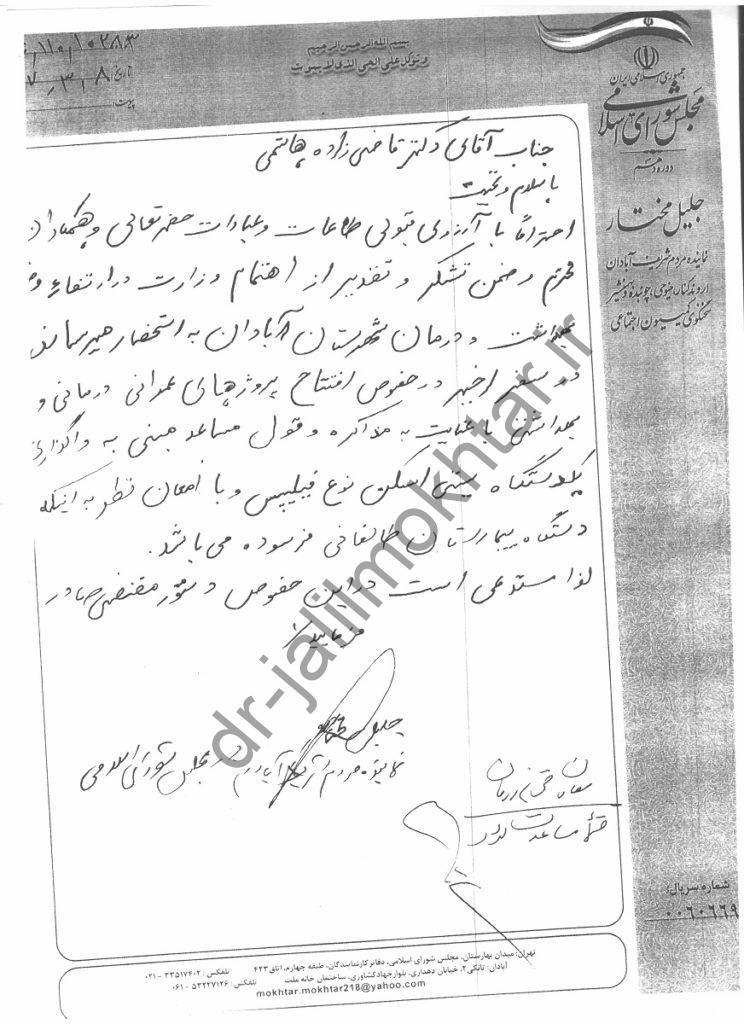 بسم الله الرحمن الرحیم
وتوکل علی الحی الذی لایموت
۱۱۰/۱۰۲۸۳
تاریخ:
۷ . ۳ . ۸
پیوست:
جمهوری اسلامی ایران
مجلس شورای اسلامی
دوره دهم
جلیل مختار
نماینده مردم شریف آبادان
اروندکنار، خنوبی، چوئبده و منیوحی
سخنگوی کمیسیون اجتماعی
جناب آقای دکتر قاضی زاده هاشمی
با سلام و تحیت
احتراماً با آرزوی قبولی طاعات و عبادات حضرتعالی و همکاران
محترم و ضمن تشکر و تقدیر از اهتمام وزارت در ارتقاء
بهداشت و درمان شهرستان آبادان به استحضار میرساند
در سفر اخیر در خصوص افتتاح پروژهای عمرانی درمانی و
بهداشتی با عنایت به مذاکره و قول مساعد مبنی به واگذاری
یکدستگاه سیتی اسکن نوع فیلیپس و با امعان نظر به اینکه
دستگاه بیمارستان طالقانی فرسوده می باشد.
لذا مستدعی است در این خصوص دستور مقتضی صادر
فرمایید
جلیل مختار
نماینده مردم شریف آبادان در مجلس شورای اسلامی
معاون محترم درمان
مساعدت
شماره سریال:
۰۰۶۰۶۶۹
تهران: میدان بهارستان، مجلس شورای اسلامی، دفاتر کار نمایندگان، طبقه چهارم، اتاق ۴۲۳ تلفکس: ۳۳۵۱۷۴۰۲ - ۰۲۱
آبادان: تانکی۲، خیابان دهداری، بلوار جهاد کشاورزی، ساختمان خانه ملت تلفکس: ۵۳۲۲۷۱۲۶ - ۰۶۱
mokhtar.mokhtar218@yahoo.com
dr-jalilmokhtar.ir